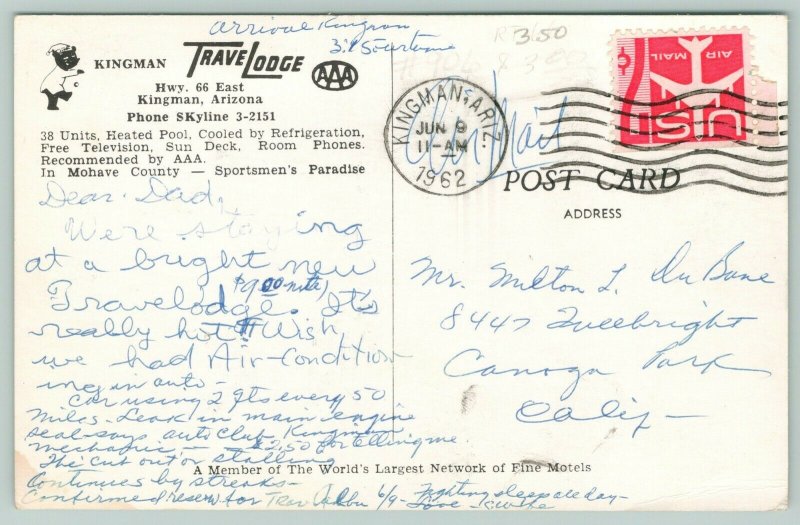 arrival Kingman
R 3.50
KINGMAN TRAVELODGE
AAA
Hwy. 66 East
Kingman, Arizona
Phone SKyline 3-2151
38 Units, Heated Pool, Cooled by Refrigeration,
Free Television, Sun Deck, Room Phones.
Recommended by AAA.
In Mohave County — Sportsmen's Paradise
Dear Dad,
We're staying
at a bright new
$9.00 nite)
Travelodge. It's
really hot!! Wish
we had Air-Condition
ing in auto -
Car using 2 qts every 50
miles - Leak in main engine
seal - says auto club Kingman
mechanic — $2.50 for telling me.
The cut out or stalling
Continues by streaks -
Confirmed reserv for 6/9 - Fighting sleep all day -
Love -
AIR MAIL
US
KINGMAN, ARIZ.
JUN 9
11-AM
1962
Air Mail
POST CARD
ADDRESS
Mr. Milton L. Du Bane
8447 Fullbright
Canoga Park
Calif -
A Member of The World's Largest Network of Fine Motels